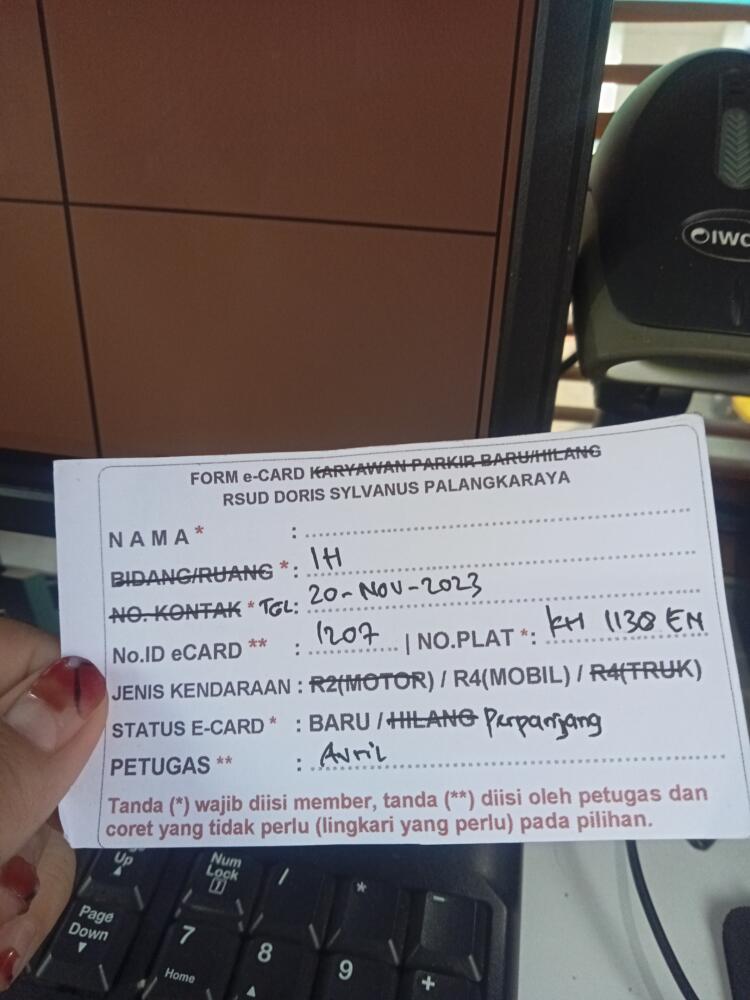 IWO
FORM e-CARD KARYAWAN PARKIR BARU/HILANG
RSUD DORIS SYLVANUS PALANGKARAYA
NAMA* :
BIDANG/RUANG *: 1H
NO. KONTAK * TGL: 20-NOV-2023
No.ID eCARD ** : 1207 | NO.PLAT *: KH 1138 EN
JENIS KENDARAAN : R2(MOTOR) / R4(MOBIL) / R4(TRUK)
STATUS E-CARD * : BARU / HILANG Perpanjang
PETUGAS ** : Avril
Tanda (*) wajib diisi member, tanda (**) diisi oleh petugas dan
coret yang tidak perlu (lingkari yang perlu) pada pilihan.
Up
Num
Lock
/
*
-
Page
Down
7
Home
8
9
+